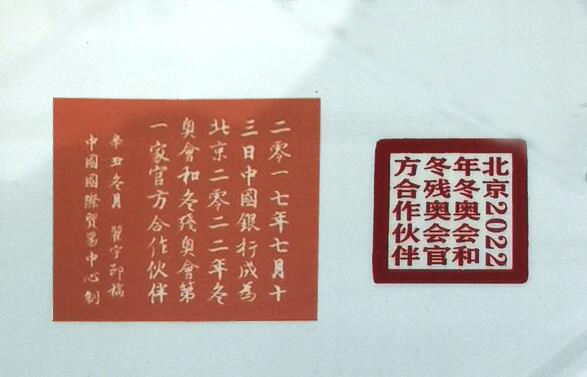 二零一七年七月十
三日中國銀行成為
北京二零二二年冬
奧會和冬殘奧會第
一家官方合作伙伴
辛丑冬月 翟宇 稿
中國國際貿易中心制
北京2022
年冬奥会和
冬残奥会官
方合作伙伴